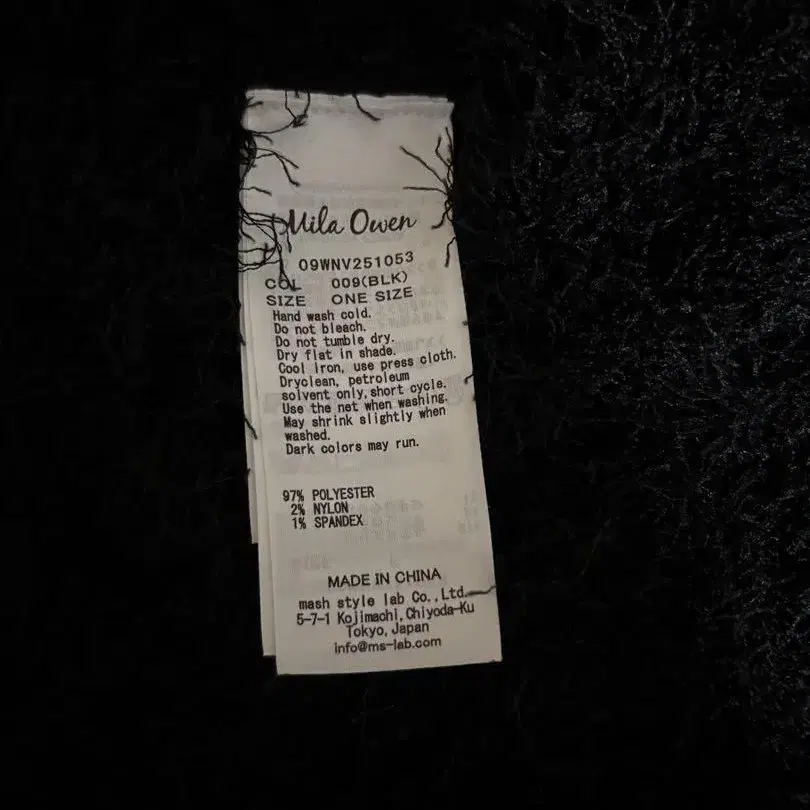 Mila Owen
09WNV251053
COL 009(BLK)
SIZE ONE SIZE
Hand wash cold.
Do not bleach.
Do not tumble dry.
Dry flat in shade.
Cool iron, use press cloth.
Dryclean, petroleum
solvent only,short cycle.
Use the net when washing.
May shrink slightly when
washed.
Dark colors may run.
97% POLYESTER
2% NYLON
1% SPANDEX
MADE IN CHINA
mash style lab Co.,Ltd.
5-7-1 Kojimachi,Chiyoda-Ku
Tokyo,Japan
info@ms-lab.com